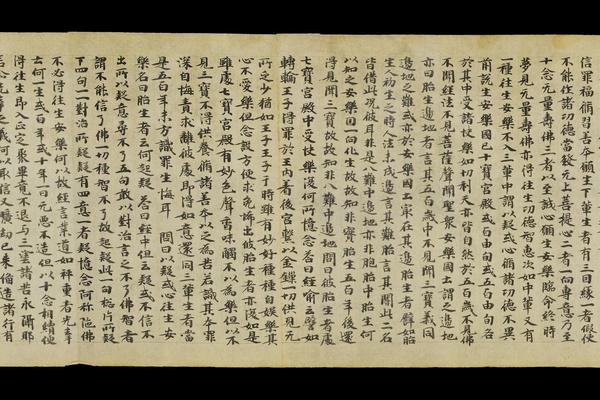 信罪福脩習善本願生下輩生者有三因緣一者假使
不能作諸功德當發无上菩提心二者一向專意乃至
十念念无量壽佛三者以至誠心願生安樂臨命終時
夢見无量壽佛亦得往生功德智惠次如中輩又有
一種往生安樂不入三輩中謂以疑或心脩諸功德不異
前說生安樂國已十寶宮殿或百由旬或五百由旬各
於其中受諸快樂如忉利天亦皆自然於五百歲不見佛
不聞經法不見菩薩聲聞聖衆安樂國土謂之邊地
亦曰胎生邊地者言其五百歲中不見聞三寶義同
邊地之難或亦於安樂國土㝡在其邊胎生者譬如胎
生人初生之時人法未成邊言其難胎言其闇此二名
皆借此況彼耳非是八難中邊地亦非胞胎中胎生何
以知之安樂國一向化生故故知非實胎生五百年後還
得見聞三寶故故知非八難中邊地問曰彼胎生者處
七寶宮殿中受快樂復何所憶念荅曰經喻言譬如
轉輪王子得罪於王內着後宮繫以金鎖一切供具无
所乏少猶如王子王子于時雖有妙好種種自娛樂其
心不受樂但念設方便求免悕出彼胎生者亦復如是
雖處七寶宮殿有妙色聲香味觸不以為樂但以不
見三寶不得供養脩諸善本以之為苦若識其本罪
深自悔責求離彼處即得如意還同三輩生者當
是五百年末方識罪生悔耳 問曰以疑或心往生安
樂名曰胎生者云何起疑荅曰經中但云疑或不信不
出所以疑意尋不了五句敢以對治言之不了佛智者
謂不能信了佛一切種智不了故起疑此一句惣片所疑
下四句一對治所疑疑有四意一者疑憶念阿弥陁佛
不必得往生安樂何以故經言業道如秤重者先牽
云何一生或百年或十年一日无惡不造但以十念相續便
得往生即入正定聚畢竟不退与三塗諸苦永隔耶
先牽之義何以取信又曠劫已來備造諸行有